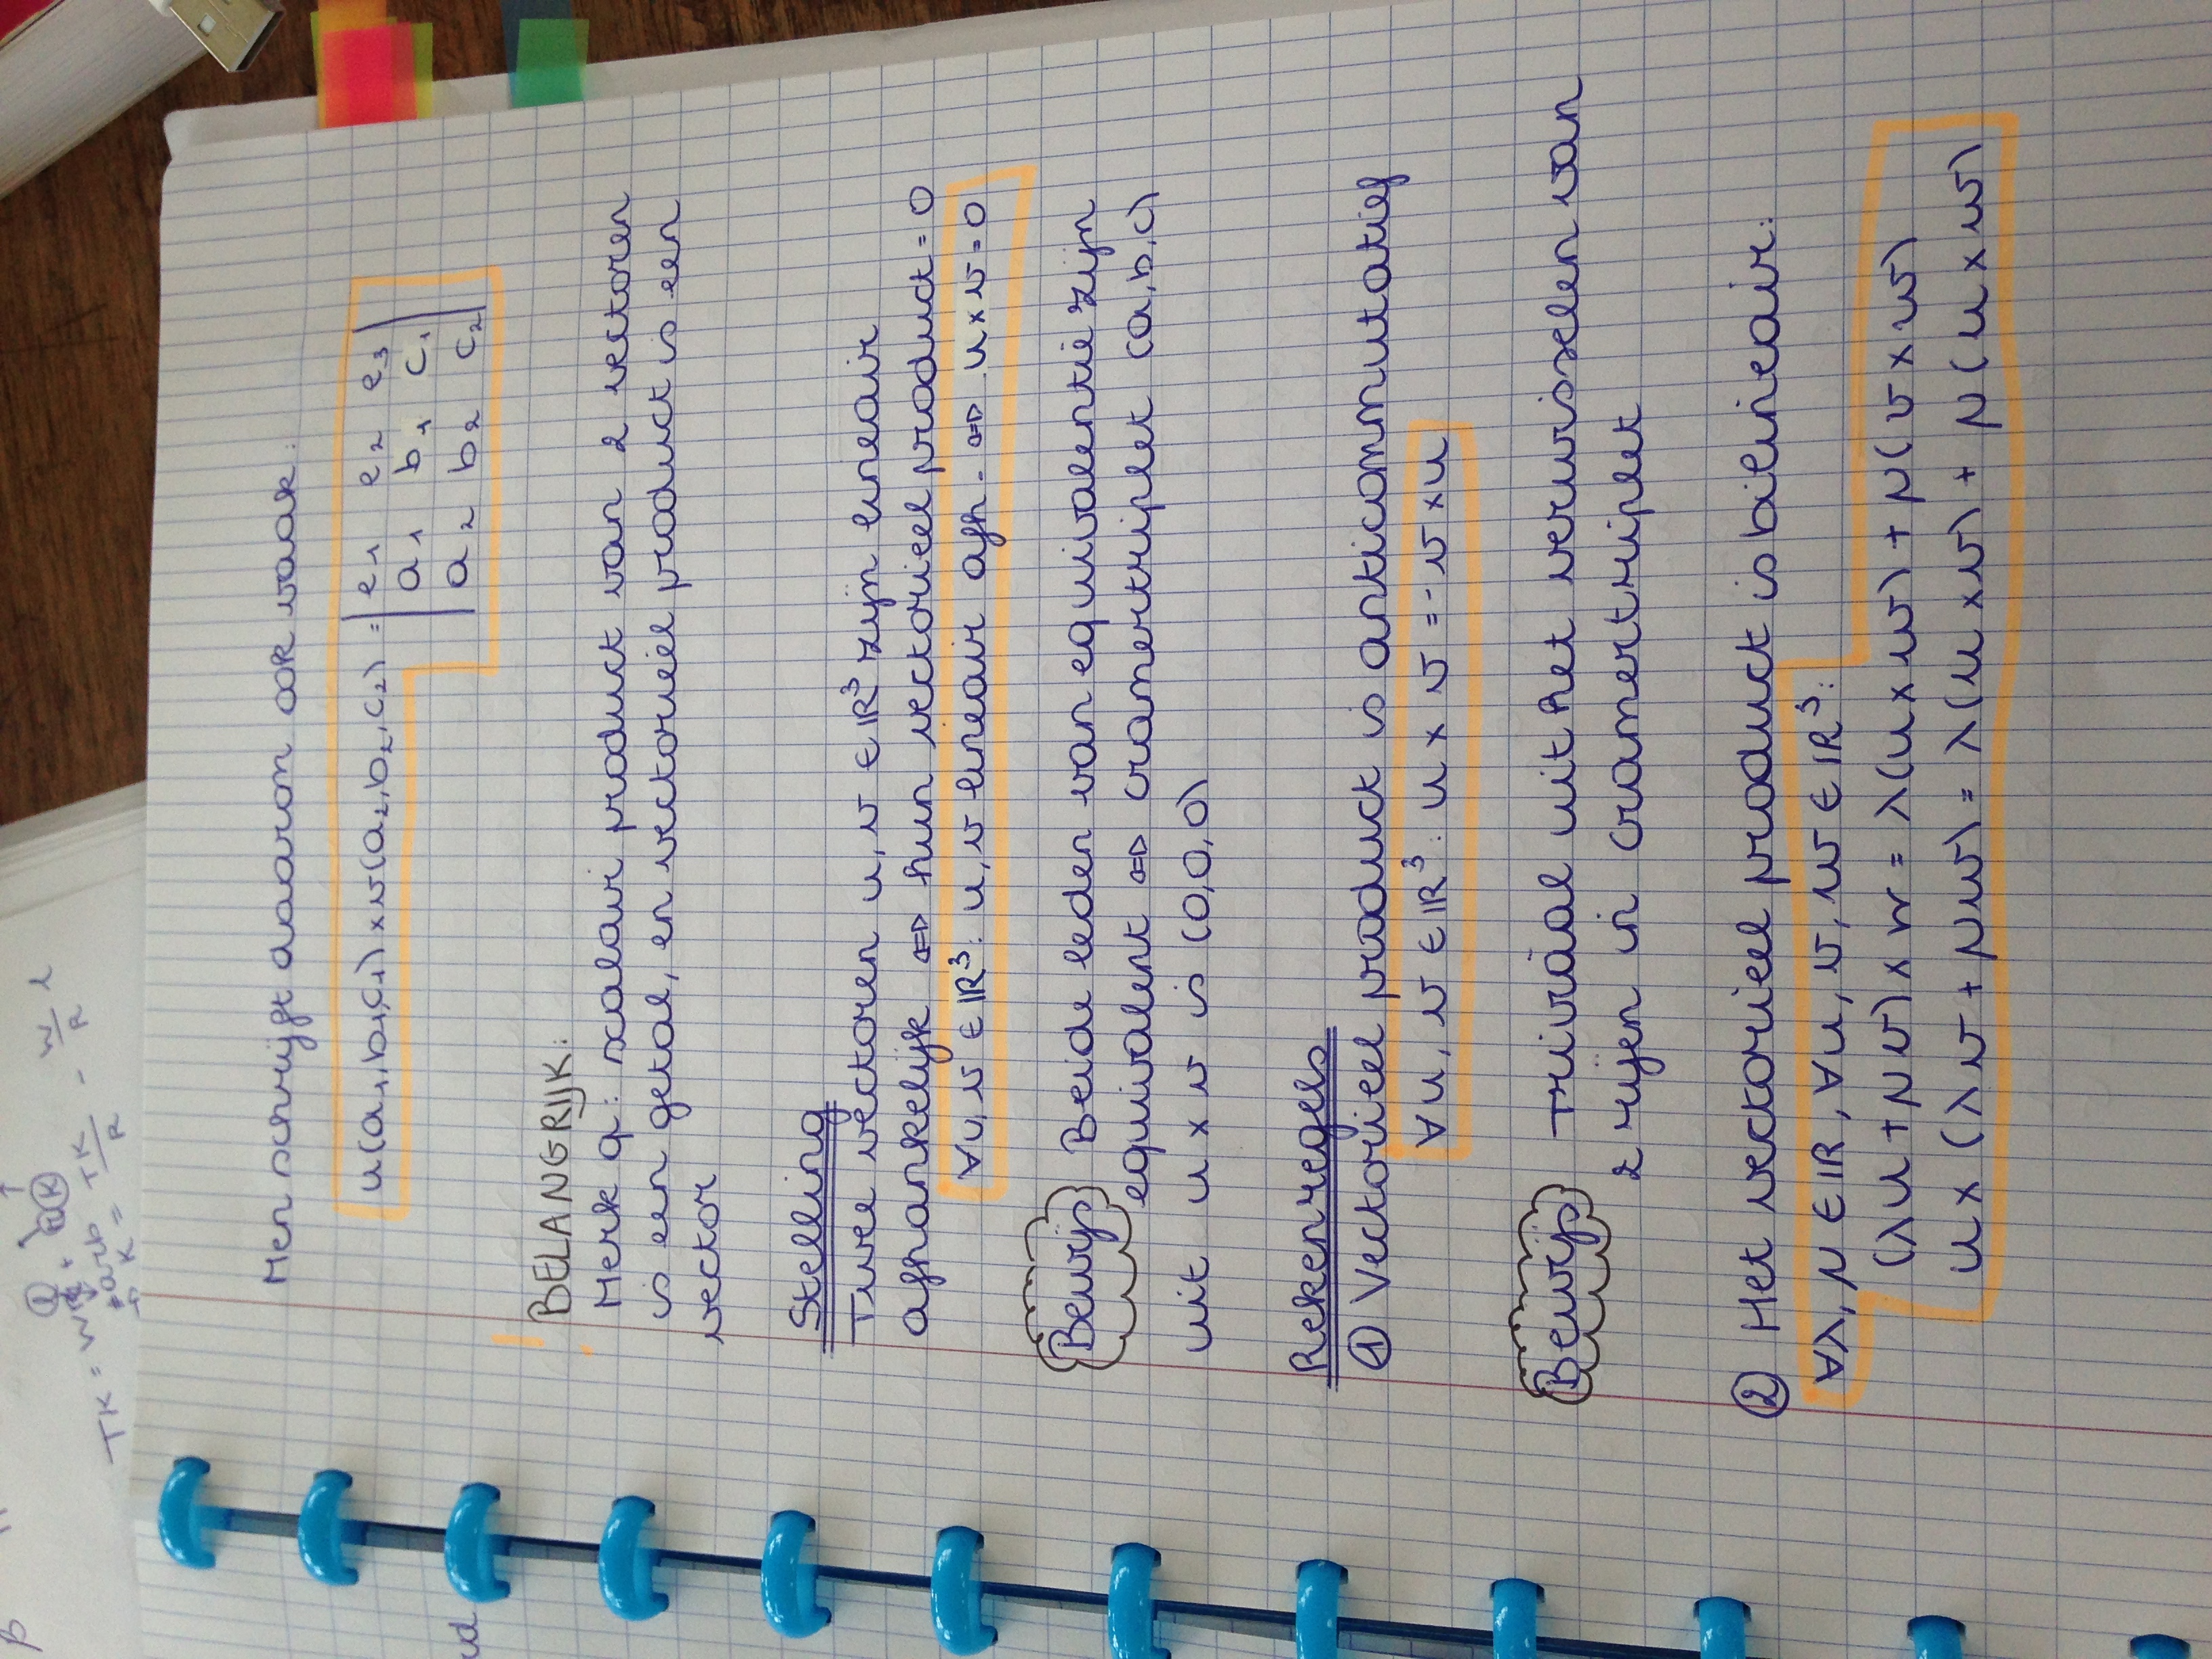 Men schrijft daarom ook vaak:
u(a₁,b₁,c₁) × v(a₂,b₂,c₂) = | e₁ e₂ e₃ |
| a₁ b₁ c₁ |
| a₂ b₂ c₂ |
BELANGRIJK:
Merk q: scalair product van 2 vectoren
is een getal, en vectorieel product is een
vector
Stelling
Twee vectoren u, v ∈ ℝ³ zijn lineair
afhankelijk ⇔ hun vectorieel product = 0
∀u, v ∈ ℝ³: u, v lineair afh. ⇔ u × v = 0
Bewijs Beide leden van equivalentie zijn
equivalent ⇔ cramertriplet (a,b,c)
uit u × v is (0,0,0)
Rekenregels
① Vectorieel product is anticommutatief
∀u, v ∈ ℝ³: u × v = - v × u
Bewijs Triviaal uit het verwisselen van
2 rijen in cramertriplet
② Het vectorieel product is bilineair:
∀λ, μ ∈ ℝ, ∀u, v, w ∈ ℝ³:
(λu + μv) × w = λ(u × w) + μ(v × w)
u × (λv + μw) = λ(u × v) + μ(u × w)